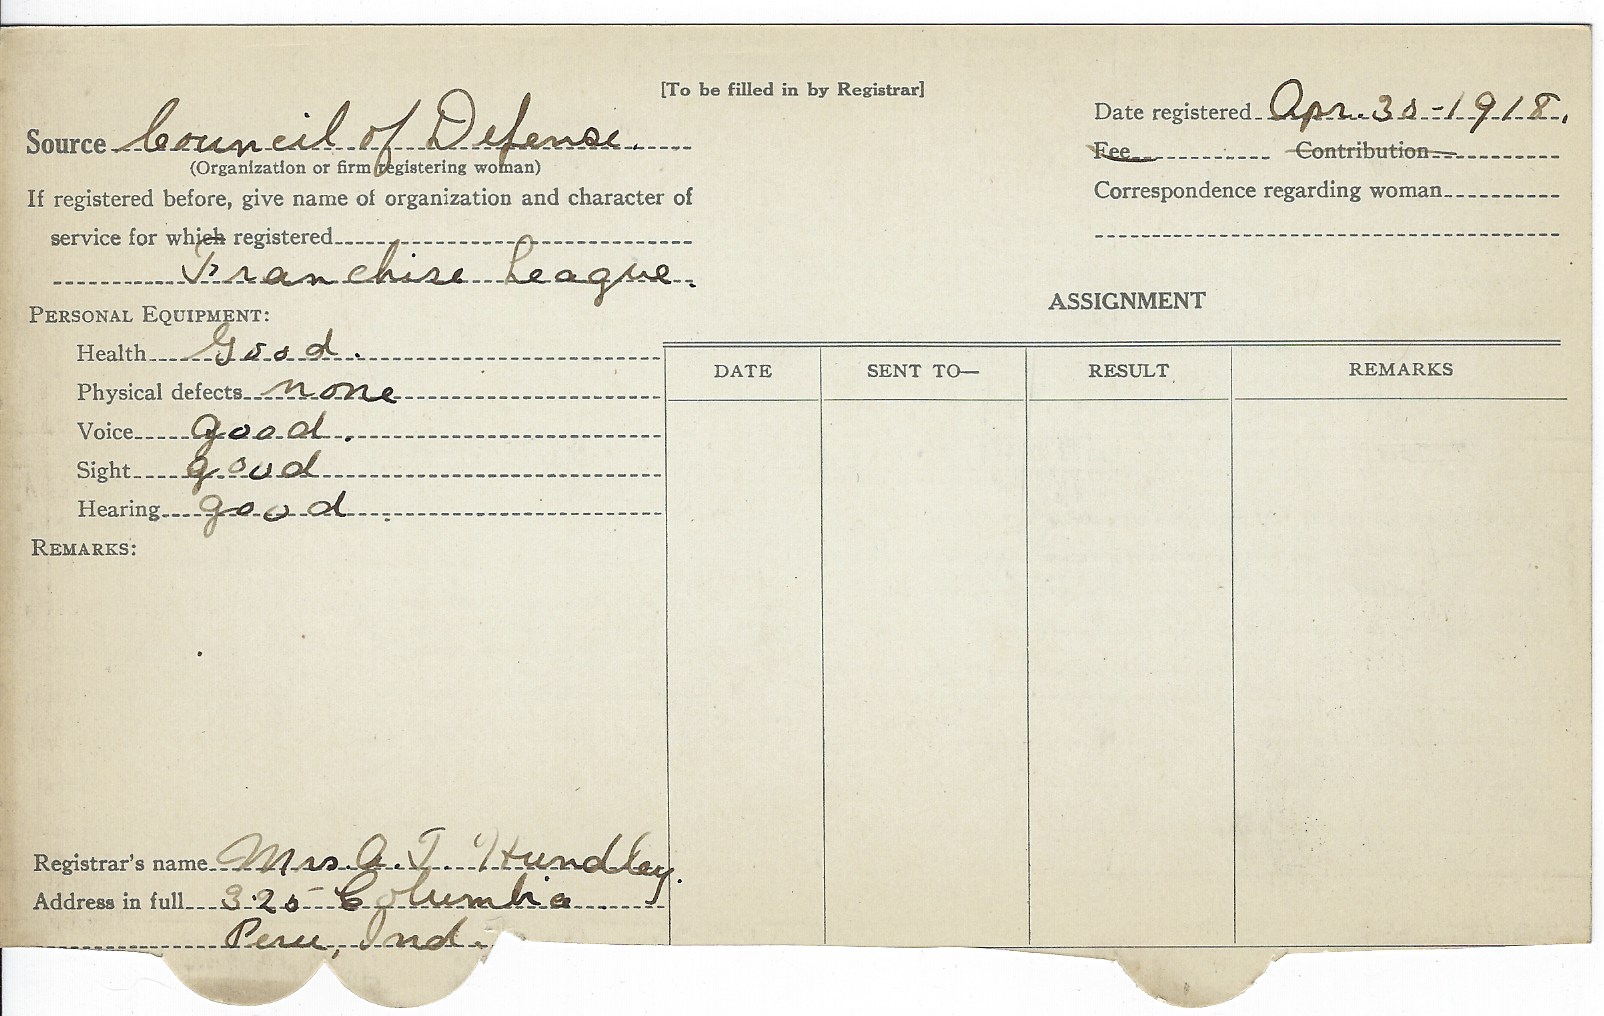 [To be filled in by Registrar]
Source Council of Defense.
(Organization or firm registering woman)
If registered before, give name of organization and character of
service for which registered
Franchise League.
Date registered Apr. 30-1918.
Fee Contribution
Correspondence regarding woman
PERSONAL EQUIPMENT:
Health Good.
Physical defects none
Voice good.
Sight good
Hearing good
REMARKS:
ASSIGNMENT
DATE SENT TO— RESULT REMARKS
Registrar's name Mrs. A. T. Hundley.
Address in full 325 Columbia
Peru, Ind.